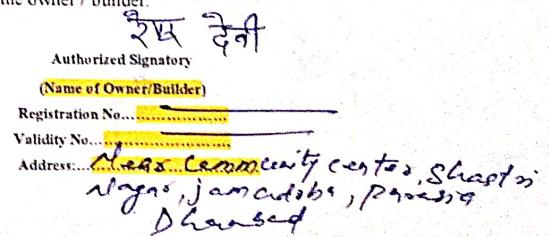 the owner / builder.
रेखा देवी
Authorized Signatory
(Name of Owner/Builder)
Registration No........................
Validity No........................
Address:...Near Community center, Shastri
Nagar, Jamadoba,
Dhanbad